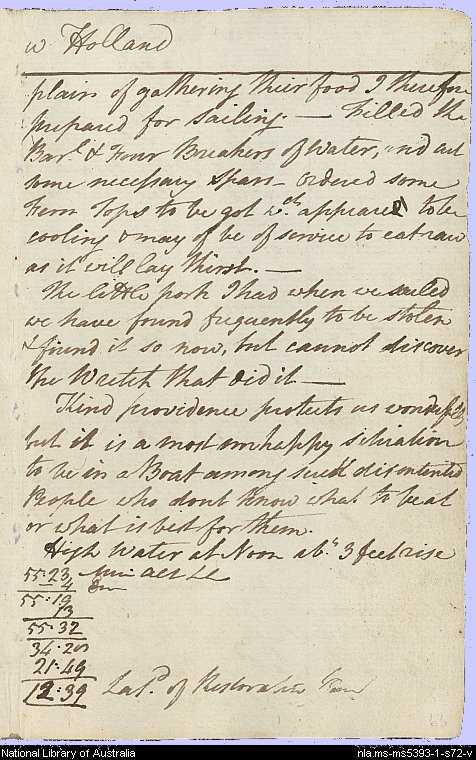 w Holland
plain of gathering their food I therefore
prepared for sailing. — Filled the
Barl. & Four Breakers of Water, and cut
some necessary spars — Ordered some
Fern Tops to be got wch. appeared to be
cooling & may of be of service to eat raw
as it will lay thirst. —
The little pork I had when we sailed
we have found frequently to be stolen
& found it so now, but cannot discover
the Wretch that did it —
Kind providence protects us wonderfully
but it is a most unhappy situation
to be in a Boat among such discontented
People who dont know what to be at
or what is best for them.
High Water at Noon abt. 3 feet rise
55.23 Mer Alt LL
4
55.19
13
55.32
34.28
21.49
12.39 Latd. of Restoration
National Library of Australia nla.ms-ms5393-1-s72-v